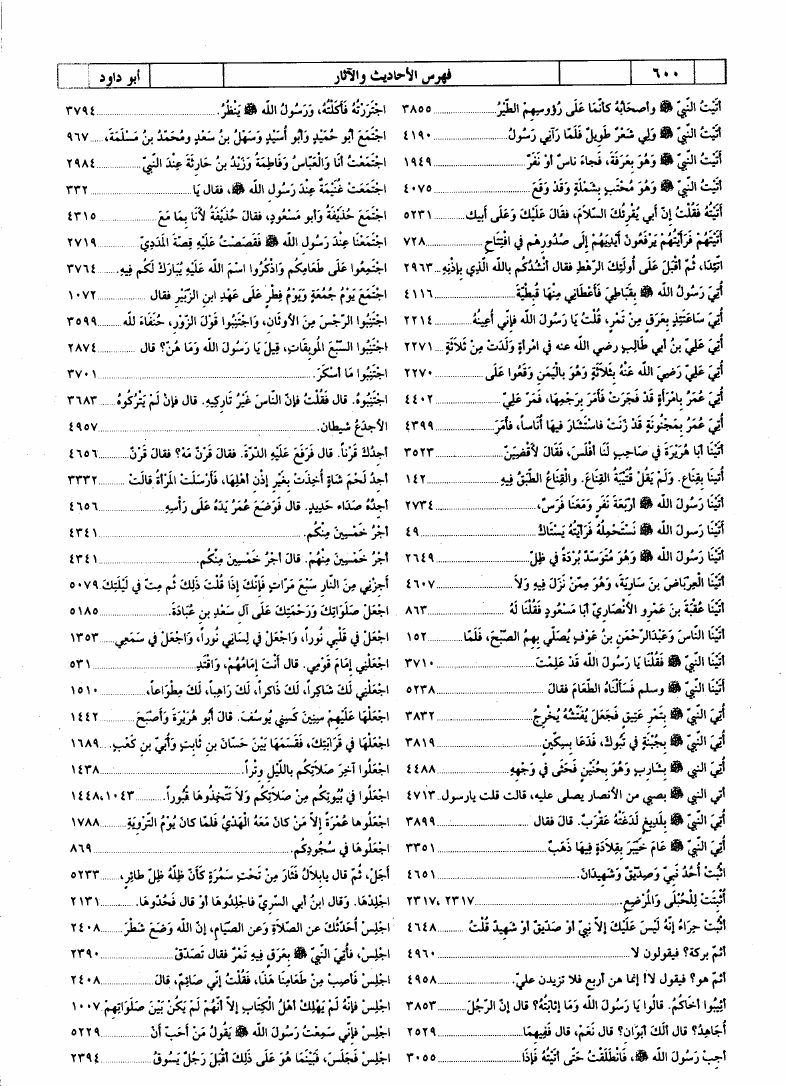 ٦٠٠
فهرس الأحاديث والآثار
أبو داود
أَتَيْتُ النَّبيَّ ﷺ وأصحَابُهُ كأنَّمَا عَلَى رُؤوسِهِم الطَّيْرُ ٣٨٥٥
أَتَيْتُ النَّبيَّ ﷺ وَلِي شَعْرٌ طَوِيلٌ فَلَمَّا رَآنِي رَسُولُ ٤١٩٠
أَتَيْتُ النَّبيَّ ﷺ وَهُوَ بِعَرَفَةَ، فَجَاءَ نَاسٌ أَوْ نَفَرٌ ١٩٤٩
أَتَيْتُ النَّبيَّ ﷺ وَهُوَ مُحْتَبٍ بِشَمْلَةٍ وَقَدْ وَقَعَ ٤٠٧٥
أَتَيْتُهُ فَقُلْتُ إنَّ أَبي يُقْرِئُكَ السَّلَامَ، فَقَالَ عَلَيْكَ وَعَلَى أَبِيكَ ٥٢٣١
أَتَيْتُهُمْ فَرَأَيْتُهُمْ يَرْفَعُونَ أَيْدِيَهُمْ إلَى صُدُورِهِم في افْتِتَاحِ ٧٢٨
اتَّئِدَا، ثُمَّ أَقْبَلَ عَلَى أُولَئِكَ الرَّهْطِ فقال أَنْشُدُكُم بالله الَّذِي بإذْنِهِ ٢٩٦٣
أُتِيَ رَسُولُ الله ﷺ بِقَبَاطِيَّ فَأَعْطَانِي مِنْهَا قُبْطِيَّةً ٤١١٦
أُتِيَ سَاعَتَئِذٍ بِعَرَقٍ مِنْ تَمْرٍ، قُلْتُ يَا رَسُولَ الله فَإِنِّي أُعِينُهُ ٢٢١٤
أُتِيَ عَلِيُّ بنُ أَبي طَالِبٍ رضي الله عنه في امْرأةٍ وَلَدَتْ مِنْ ثَلَاثَةٍ ٢٢٧١
أُتِيَ عَلِيٌّ رَضِيَ الله عَنْهُ بِثَلَاثَةٍ وَهُوَ بالْيَمَنِ وَقَعُوا عَلَى ٢٢٧٠
أُتِيَ عُمَرُ بامْرَأَةٍ قَدْ فَجَرَتْ فَأَمَرَ بِرَجْمِهَا، فَمَرَّ عَلِيٌّ ٤٤٠٢
أُتِيَ عُمَرُ بِمَجْنُونَةٍ قَدْ زَنَتْ فاسْتَشَارَ فيها أُنَاساً، فأَمَرَ ٤٣٩٩
أَتَيْنَا أَبَا هُرَيْرَةَ في صَاحِبٍ لَنَا أَفْلَسَ، فَقَالَ لأَقْضِيَنَّ ٣٥٢٣
أُتِينَا بِقِنَاعٍ. وَلَمْ يَقُلْ قُتَيْبَةُ القِنَاعَ. وَالْقِنَاعُ الطَّبَقُ فِيهِ ١٤٢
أَتَيْنَا رَسُولَ الله ﷺ أَرْبَعَةَ نَفَرٍ وَمَعَنَا فَرَسٌ، ٢٧٣٤
أَتَيْنَا رَسُولَ الله ﷺ نَسْتَحْمِلُهُ فَرَأَيْتُهُ يَسْتَاكُ ٤٩
أَتَيْنَا رَسُولَ الله ﷺ وَهُوَ مُتَوَسِّدٌ بُرْدَةً في ظِلِّ ٢٦٤٩
أَتَيْنَا الْعِرْبَاضَ بنَ سَارِيَةَ، وَهُوَ مِمَّنْ نَزَلَ فِيهِ وَلَا ٤٦٠٧
أَتَيْنَا عُقْبَةَ بن عَمْرٍو الأَنْصَارِيَّ أَبَا مَسْعُودٍ فَقُلْنَا لَهُ ٨٦٣
أَتَيْنَا النَّاسَ وَعَبْدالرَّحْمَنِ بنُ عَوْفٍ يُصَلِّي بِهِمُ الصُّبْحَ، فَلَمَّا ١٥٢
أَتَيْنَا النَّبيَّ ﷺ فَقُلْنَا يَا رَسُولَ الله قَدْ عَلِمْتَ ٣٧١٠
أَتَيْنَا النَّبيَّ ﷺ وسلم فَسَأَلْنَاهُ الطَّعَامَ فقالَ ٥٢٣٨
أُتِيَ النَّبيُّ ﷺ بِتَمْرٍ عَتِيقٍ فَجَعَلَ يُفَتِّشُهُ يُخْرِجُ ٣٨٣٢
أُتِيَ النَّبيُّ ﷺ بِجُبْنَةٍ في تَبُوكَ، فَدَعَا بِسِكِّينٍ ٣٨١٩
أُتِيَ النبي ﷺ بِشَارِبٍ وَهُوَ بِحُنَيْنٍ فَحَثَى في وَجْهِهِ ٤٤٨٨
أتي النبي ﷺ بصبي من الأنصار يصلى عليه، قالت قلت يارسول ٤٧١٣
أُتِيَ النَّبيُّ ﷺ بِلَدِيغٍ لَدَغَتْهُ عَقْرَبٌ. قالَ فقال ٣٨٩٩
أُتِيَ النَّبيُّ ﷺ عَامَ خَيْبَرَ بِقِلَادَةٍ فِيهَا ذَهَبٌ ٣٣٥١
اثْبُتْ أُحُدُ نَبيٌّ وَصِدِّيقٌ وَشَهِيدَانِ. ٤٦٥١
أُثْبِتَتْ لِلْحُبْلَى وَالْمُرْضِعِ. ٢٣١٧، ٢٣١٧
اثْبُتْ حِرَاءُ إنَّهُ لَيْسَ عَلَيْكَ إلاَّ نَبِيٌّ أَوْ صِدِّيقٌ أَوْ شَهِيدٌ قُلْتُ ٤٦٤٨
أثم بركة؟ فيقولون لا ٤٩٦٠
أثم هو؟ فيقول لا! إنما هن أربع فلا تزيدن عليّ. ٤٩٥٨
أَثِيبُوا أَخَاكُمْ. قالُوا يَا رَسُولَ الله وَمَا إثَابَتُهُ؟ قال إنَّ الرَّجُلَ ٣٨٥٣
أُجَاهِدُ؟ قال أَلَكَ أَبَوَانِ؟ قال نَعَمْ، قال فَفِيهِمَا ٢٥٢٩
أَجِبْ رَسُولَ الله ﷺ، فَانْطَلَقْتُ حَتَّى أَتَيْتُهُ فَإِذَا ٣٠٥٥
اجْتَزَزْتُهُ فَأَكَلْتُهُ، وَرَسُولُ الله ﷺ يَنْظُرُ. ٣٧٩٤
اجْتَمَعَ أبو حُمَيْدٍ وَأبو أُسَيْدٍ وَسَهْلُ بنُ سَعْدٍ ومُحَمَّدُ بنُ مَسْلَمَةَ، ٩٦٧
اجْتَمَعْتُ أَنَا وَالْعَبَّاسُ وَفَاطِمَةُ وَزَيْدُ بنُ حَارِثَةَ عِنْدَ النَّبيِّ ٢٩٨٤
اجْتَمَعَتْ غُنَيْمَةٌ عِنْدَ رَسُولِ الله ﷺ، فقال يَا ٣٣٢
اجْتَمَعَ حُذَيْفَةُ وَأبو مَسْعُودٍ، فقال حُذَيْفَةُ لأَنَا بِمَا مَعَ ٤٣١٥
اجْتَمَعْنَا عِنْدَ رَسُولِ الله ﷺ فَقَصَصْتُ عَلَيْهِ قِصَّةَ الْمَدَدِيِّ ٢٧١٩
اجْتَمِعُوا عَلَى طَعَامِكُم وَاذْكُرُوا اسْمَ الله عَلَيْهِ يُبَارَكْ لَكُم فِيهِ. ٣٧٦٤
اجْتَمَعَ يَوْمُ جُمُعَةٍ وَيَوْمُ فِطْرٍ عَلَى عَهْدِ ابنِ الزُّبَيْرِ فقال ١٠٧٢
اجْتَنِبُوا الرِّجْسَ مِنَ الأَوْثَانِ، وَاجْتَنِبُوا قَوْلَ الزُّورِ، حُنَفَاءَ لله ٣٥٩٩
اجْتَنِبُوا السَّبْعَ الْمُوبِقَاتِ، قِيلَ يَا رَسُولَ الله وَمَا هُنَّ؟ قال ٢٨٧٤
اجْتَنِبُوا مَا أَسْكَرَ. ٣٧٠١
اجْتَنِبُوهُ. قال فَقُلْتُ فَإنَّ النَّاسَ غَيْرُ تَارِكِيهِ. قال فَإِنْ لَمْ يَتْرُكُوهُ ٣٦٨٣
الأَجدَعُ شيطان. ٤٩٥٧
أَجِدُكَ قَرْناً. قال فَرَفَعَ عَلَيْهِ الدِّرَّةَ. فقالَ قَرْنٌ مَهْ؟ فقالَ قَرْنٌ ٤٦٥٦
أَجِدُ لَحْمَ شَاةٍ أُخِذَتْ بِغَيْرِ إذْنِ أَهْلِهَا، فَأَرْسَلَتْ الْمَرْأَةُ قالَتْ ٣٣٣٢
أَجِدُهُ صَدَاء حَدِيدٍ. قال فَوَضَعَ عُمَرُ يَدَهُ عَلَى رَأْسِهِ ٤٦٥٦
أَجْرُ خَمْسِينَ مِنْكُم. ٤٣٤١
أَجْرُ خَمْسِينَ مِنْهُمْ. قالَ أَجْرُ خَمْسِينَ مِنكُم. ٤٣٤١
أَجِرْنِي مِنَ النَّارِ سَبْعَ مَرَّاتٍ فَإِنَّكَ إذَا قُلْتَ ذَلِكَ ثُم مِتَّ في لَيْلَتِكَ ٥٠٧٩
اجْعَلْ صَلَوَاتِكَ وَرَحْمَتَكَ عَلَى آلِ سَعْدِ بنِ عُبَادَةَ. ٥١٨٥
اجْعَلْ في قَلْبِي نُوراً، وَاجْعَلْ في لِسَانِي نُوراً، وَاجْعَلْ في سَمْعِي ١٣٥٣
اجْعَلْنِي إِمَامَ قَوْمِي. قال أَنْتَ إِمَامُهُمْ، وَاقْتَدِ ٥٣١
اجْعَلْنِي لَكَ شَاكِراً، لَكَ ذَاكِراً، لَكَ رَاهِباً، لَكَ مِطْوَاعاً، ١٥١٠
اجْعَلْهَا عَلَيْهِمْ سِنِينَ كَسِنِي يُوسُفَ. قَالَ أبُو هُرَيْرَةَ وَأَصْبَحَ ١٤٤٢
اجْعَلْهَا في قَرَابَتِكَ، فَقَسَمَهَا بَيْنَ حَسَّانَ بنِ ثَابِتٍ وَأُبَيِّ بنِ كَعْبٍ. ١٦٨٩
اجْعَلُوا آخِرَ صَلَاتِكُم باللَّيْلِ وِتْراً. ١٤٣٨
اجْعَلُوا في بُيُوتِكُم مِنْ صَلَاتِكُم وَلَا تَتَّخِذُوهَا قُبُوراً. ١٠٤٣، ١٤٤٨
اجْعَلُوها عُمْرَةً إلاَّ مَنْ كانَ مَعَهُ الْهَدْيُ فَلَمَّا كَانَ يَوْمُ التَّرْوِيَةِ ١٧٨٨
اجْعَلُوهَا في سُجُودِكُم. ٨٦٩
أَجَلْ، ثُمَّ قال يابِلَالُ فَثَارَ مِنْ تَحْتِ سَمُرَةٍ كَأَنَّ ظِلَّهُ ظِلُّ طَائِرٍ، ٥٢٣٣
اجْلِدْهَا. وقال ابنُ أبي السَّرِيِّ فاجْلِدُوهَا أَوْ قال فَحُدُّوهَا. ٢١٣١
اجْلِسْ أُحَدِّثْكَ عن الصَّلَاةِ وعن الصِّيَامِ، إنَّ الله وَضَعَ شَطْرَ ٢٤٠٨
اجْلِسْ، فأُتِيَ النَّبيُّ ﷺ بِعَرَقٍ فِيهِ تَمْرٌ فقال تَصَدَّقْ ٢٣٩٠
اجْلِسْ فأَصِبْ مِنْ طَعَامِنَا هَذَا، فَقُلْتُ إنِّي صَائِمٌ، قالَ ٢٤٠٨
اجْلِسْ فإنَّهُ لَمْ يَهْلِكْ أَهْلُ الْكِتَابِ إلاَّ أَنَّهُمْ لَمْ يَكُنْ بَيْنَ صَلَوَاتِهِمْ ١٠٠٧
اجْلِسْ فإنِّي سَمِعْتُ رَسُولَ الله ﷺ يَقُولُ مَنْ أَحَبَّ أَنْ ٥٢٢٩
اجْلِسْ فَجَلَسَ، فَبَيْنَمَا هُوَ عَلَى ذَلِكَ أَقْبَلَ رَجُلٌ يَسُوقُ ٢٣٩٤